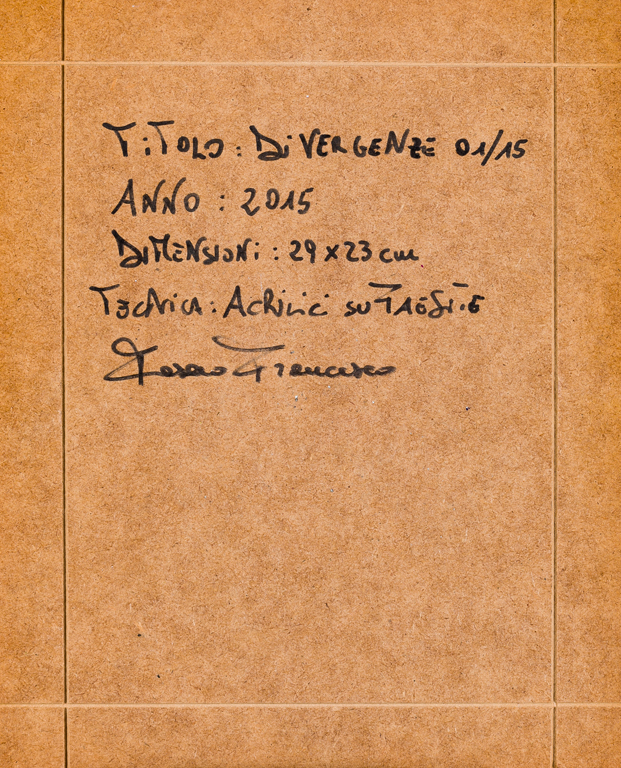 TiTOLO : DiVERGENZE 01/15
ANNO : 2015
DIMENSIONi : 29 x 23 cm
TECNICA : ACRiLiCi SU
Francesco